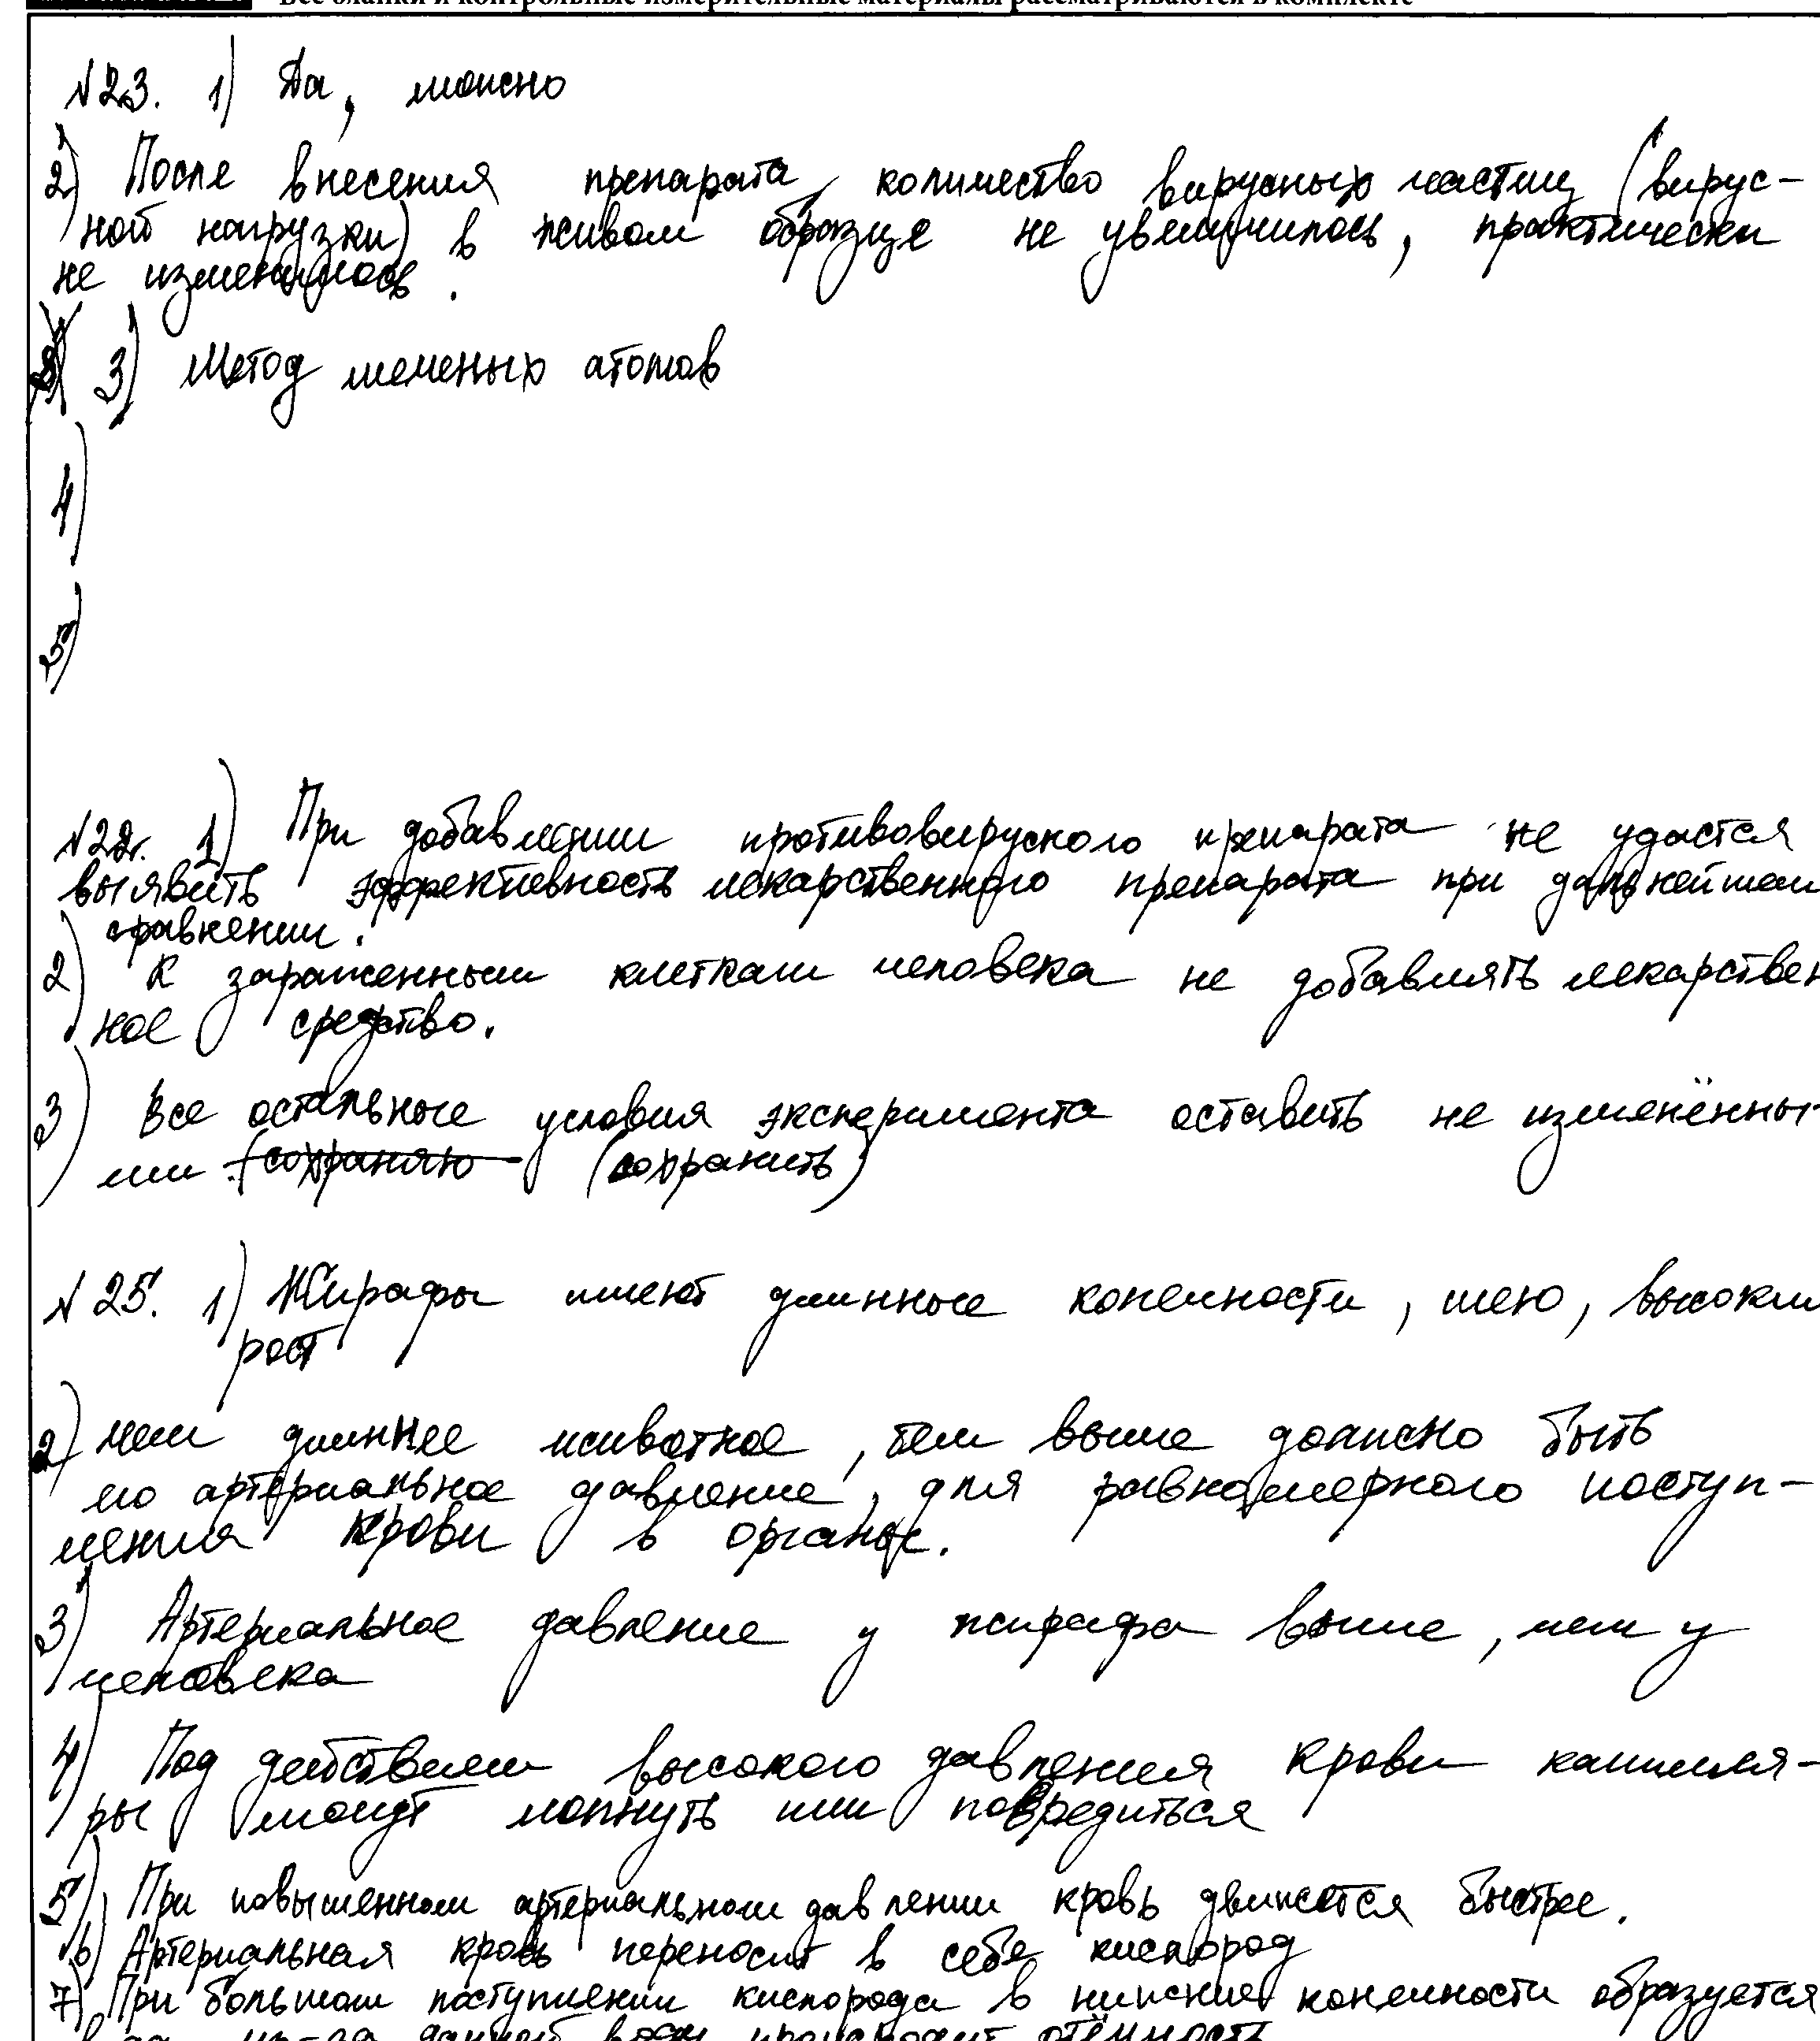 Все бланки и контрольные измерительные материалы рассматриваются в комплекте
№23. 1) Да, можно
2) После внесения препарата, количество вирусных частиц (вирус-
ной нагрузки) в живом образце не увеличилось, практически
не изменилось.
3) Метод меченых атомов
4)
5)
№22. 1) При добавлении противовируского препарата не удастся
выявить эффективность лекарственного препарата при дальнейшем
сравнении.
2) К зараженным клеткам человека не добавлять лекарствен
ное средство.
3) Все остальные условия эксперимента оставить не изменённы-
ми (сохраняю (сохранить)
№25. 1) Жирафы имеют длинные конечности, шею, высокий
рост
2) Чем длиннее животное, тем выше должно быть
его артериальное давление, для равномерного поступ-
ления крови в органы.
3) Артериальное давление у жирафа выше, чем у
человека
4) Под действием высокого давления крови капилля-
ры могут лопнуть или повредиться
5) При повышенном артериальном давлении кровь движется быстрее.
6) Артериальная кровь переносит в себе кислород
7) При большом поступлении кислорода в нижние конечности образуется
вода, из-за данной воды происходит отёчность